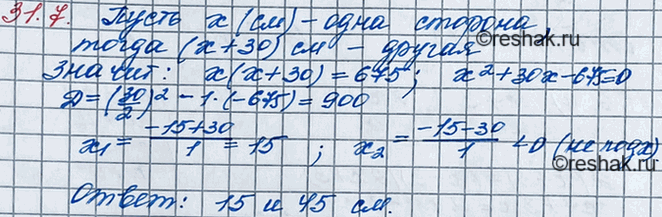 31.7. Пусть x (см) – одна сторона,
тогда (x+30) см – другая
Значит: x(x+30) = 675; x²+30x-675=0
D = (30/2)² - 1·(-675) = 900
x₁ = (-15+30)/1 = 15 ; x₂ = (-15-30)/1 < 0 (не подх)
Ответ: 15 и 45 см.
©reshak.ru
reshak.ru